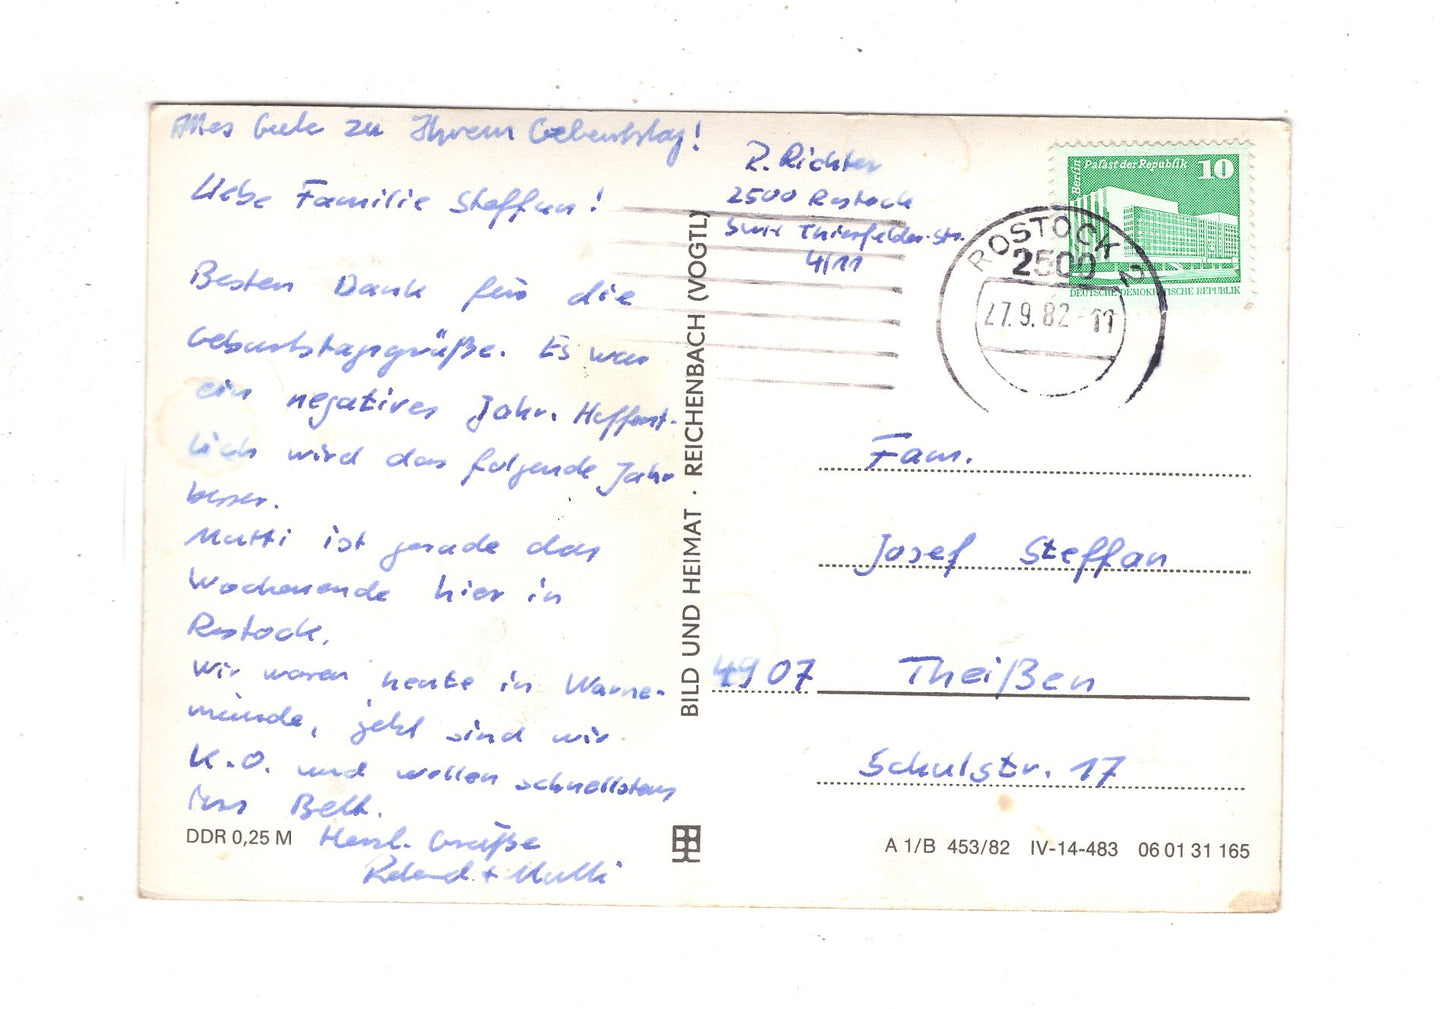 Alles Gute zu Ihrem Geburtstag!
Liebe Familie Steffan!
Besten Dank für die
Geburtstagsgrüße. Es war
ein negatives Jahr. Hoffent-
lich wird das folgende Jahr
besser.
Mutti ist gerade das
Wochenende hier in
Rostock.
Wir waren heute in Warne-
münde, jetzt sind wir
K.O. und wollen schnellstens
ins Bett.
Herzl. Grüße
Roland + Mutti
DDR 0,25 M
BILD UND HEIMAT · REICHENBACH (VOGTL)
R. Richter
2500 Rostock
Thierfelder-Str.
4/11
Berlin Palast der Republik 10
DEUTSCHE DEMOKRATISCHE REPUBLIK
ROSTOCK 2
2500
27.9.82-11
Fam.
Josef Steffan
4907 Theißen
Schulstr. 17
A 1/B 453/82 IV-14-483 06 01 31 165